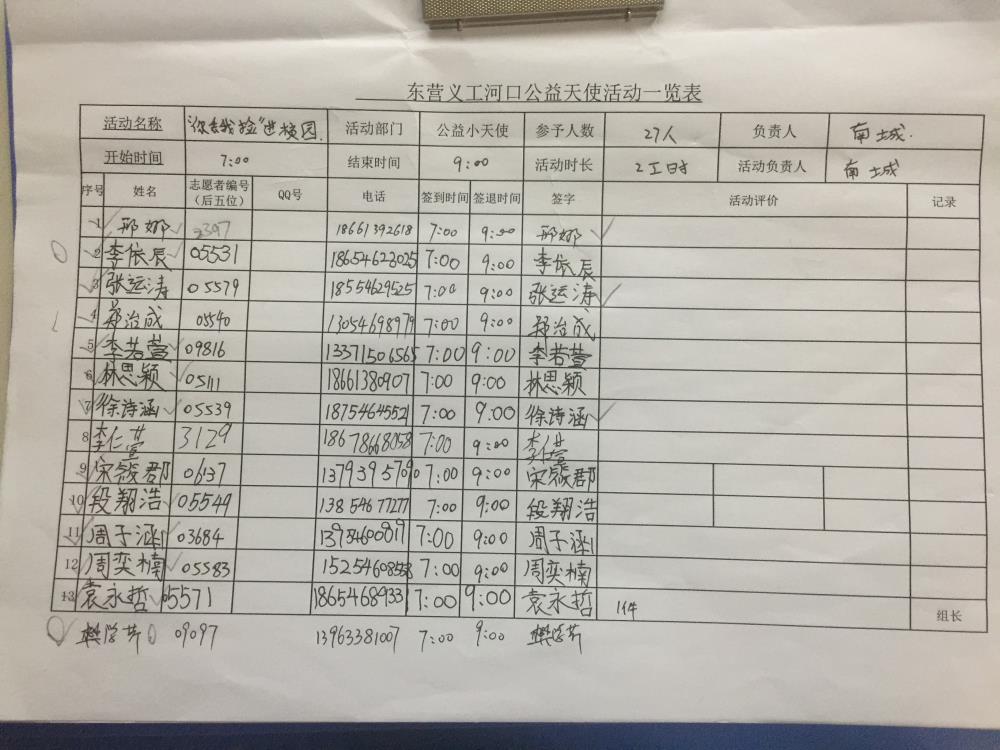 东营义工河口公益天使活动一览表
活动名称 "你查我检"进校园. 活动部门 公益小天使 参予人数 27人 负责人 南城.
开始时间 7:00 结束时间 9:00 活动时长 2工日时 活动负责人 南城
序号 姓名 志愿者编号（后五位） QQ号 电话 签到时间 签退时间 签字 活动评价 记录
1 邢娜 2397 18661392618 7:00 9:00 邢娜
2 李依辰 05531 18654623025 7:00 9:00 李依辰
3 张运涛 05579 18554629525 7:00 9:00 张运涛
4 郑治成 05540 13054698979 7:00 9:00 郑治成
5 李若萱 09816 13371506565 7:00 9:00 李若萱
6 林思颖 05111 18661380907 7:00 9:00 林思颖
7 徐诗涵 05539 18754645521 7:00 9:00 徐诗涵
8 李仁萱 3129 18678668058 7:00 9:00 李仁萱
9 宋筱郡 06137 13793957090 7:00 9:00 宋筱郡
10 段翔浩 05549 13854677277 7:00 9:00 段翔浩
11 周子涵 03684 7:00 9:00 周子涵
12 周奕楠 05583 15254608558 7:00 9:00 周奕楠
13 袁永哲 05571 18654689331 7:00 9:00 袁永哲 组长
09097 13963381007 7:00 9:00